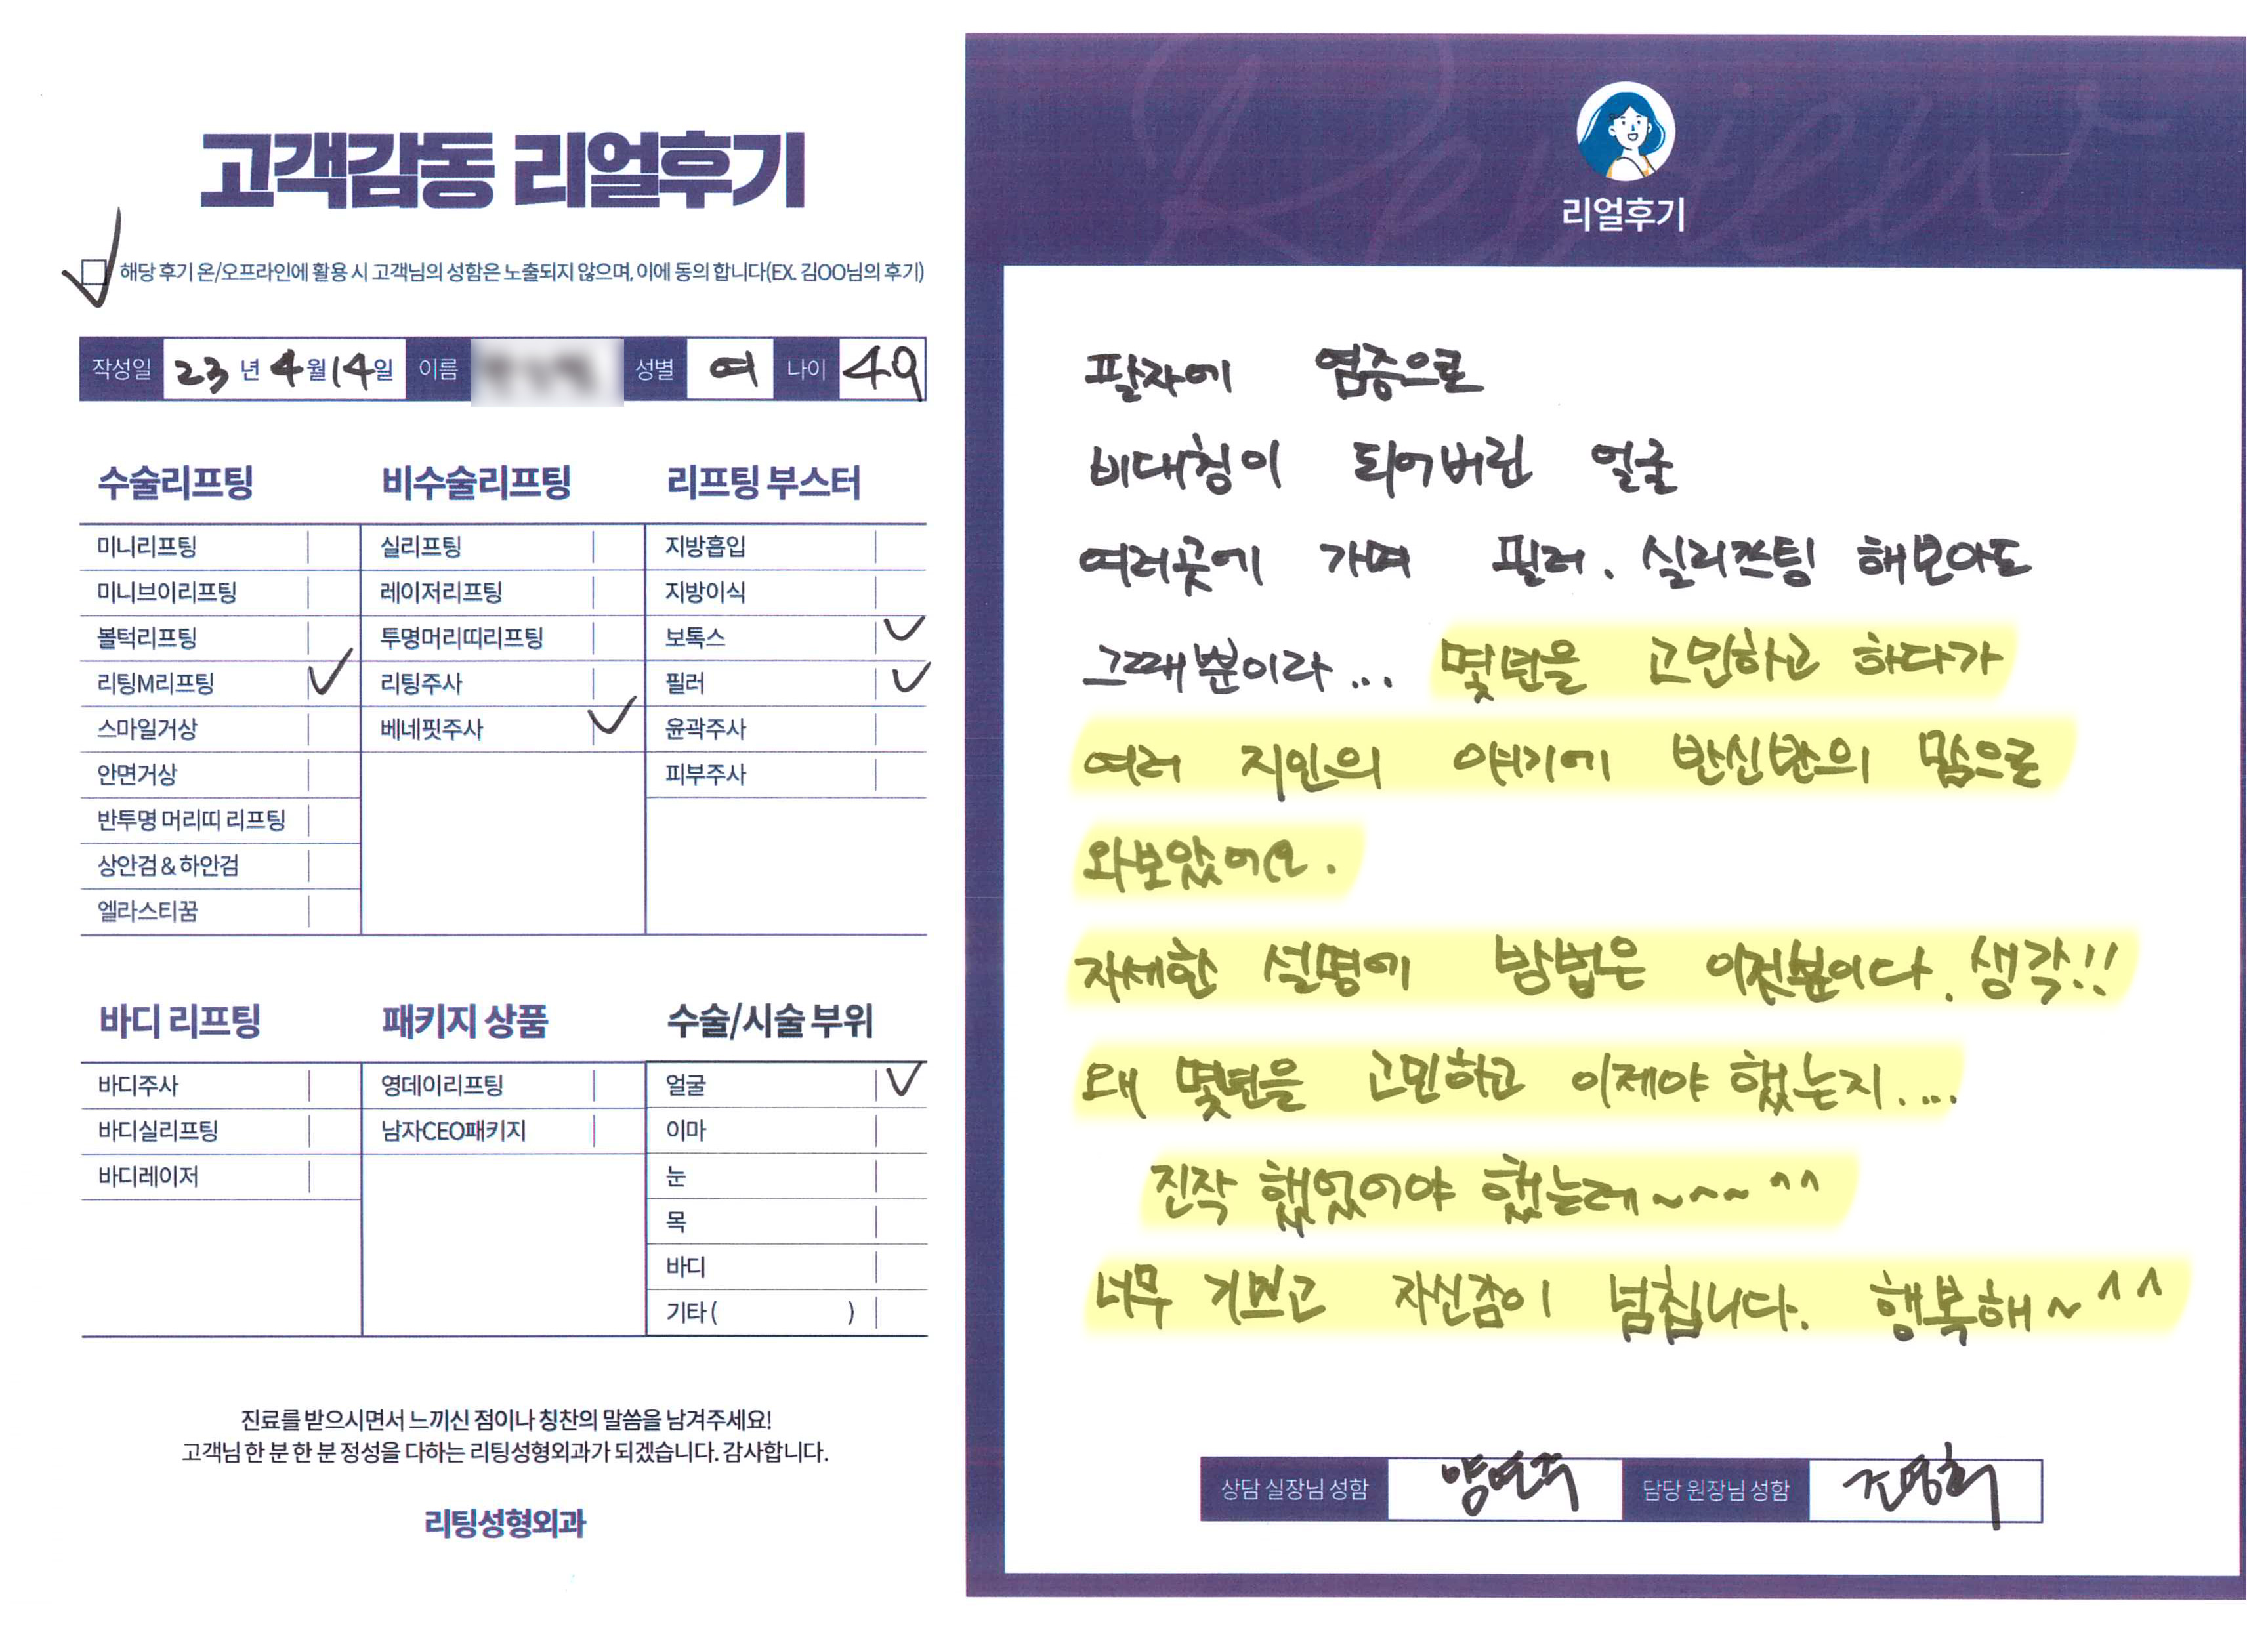 고객감동 리얼후기
해당 후기 온/오프라인에 활용 시 고객님의 성함은 노출되지 않으며, 이에 동의 합니다(EX. 김OO님의 후기)
작성일 23 년 4 월 14 일 이름 성별 여 나이 49
수술리프팅
미니리프팅
미니브이리프팅
볼턱리프팅
리팅M리프팅
스마일거상
안면거상
반투명 머리띠 리프팅
상안검 & 하안검
엘라스티꿈
비수술리프팅
실리프팅
레이저리프팅
투명머리띠리프팅
리팅주사
베네핏주사
리프팅 부스터
지방흡입
지방이식
보톡스
필러
윤곽주사
피부주사
바디 리프팅
바디주사
바디실리프팅
바디레이저
패키지 상품
영데이리프팅
남자CEO패키지
수술/시술 부위
얼굴
이마
눈
목
바디
기타 ( )
진료를 받으시면서 느끼신 점이나 칭찬의 말씀을 남겨주세요!
고객님 한 분 한 분 정성을 다하는 리팅성형외과가 되겠습니다. 감사합니다.
리팅성형외과
Review
리얼후기
팔자에 염증으로
비대칭이 되어버린 얼굴
여러곳에 가며 필러. 실리프팅 해보아도
그때뿐이라... 몇년을 고민하고 하다가
여러 지인의 얘기에 반신반의 맘으로
와보았어요.
자세한 설명에 방법은 이것뿐이다. 생각!!
왜 몇년을 고민하고 이제야 했는지....
진작 했었어야 했는데~~~~ ^^
너무 기쁘고 자신감이 넘칩니다. 행복해~ ^^
상담 실장님 성함 양연주 담당 원장님 성함